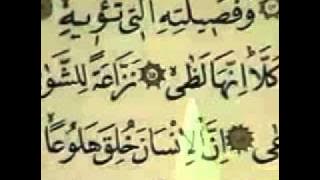 وَفَصِيلَتِهِ الَّتِي تُؤْوِيهِ
كَلَّا إِنَّهَا لَظَىٰ ۝ نَزَّاعَةً لِّلشَّوَ
إِنَّ الْإِنْسَانَ خُلِقَ هَلُوعًا